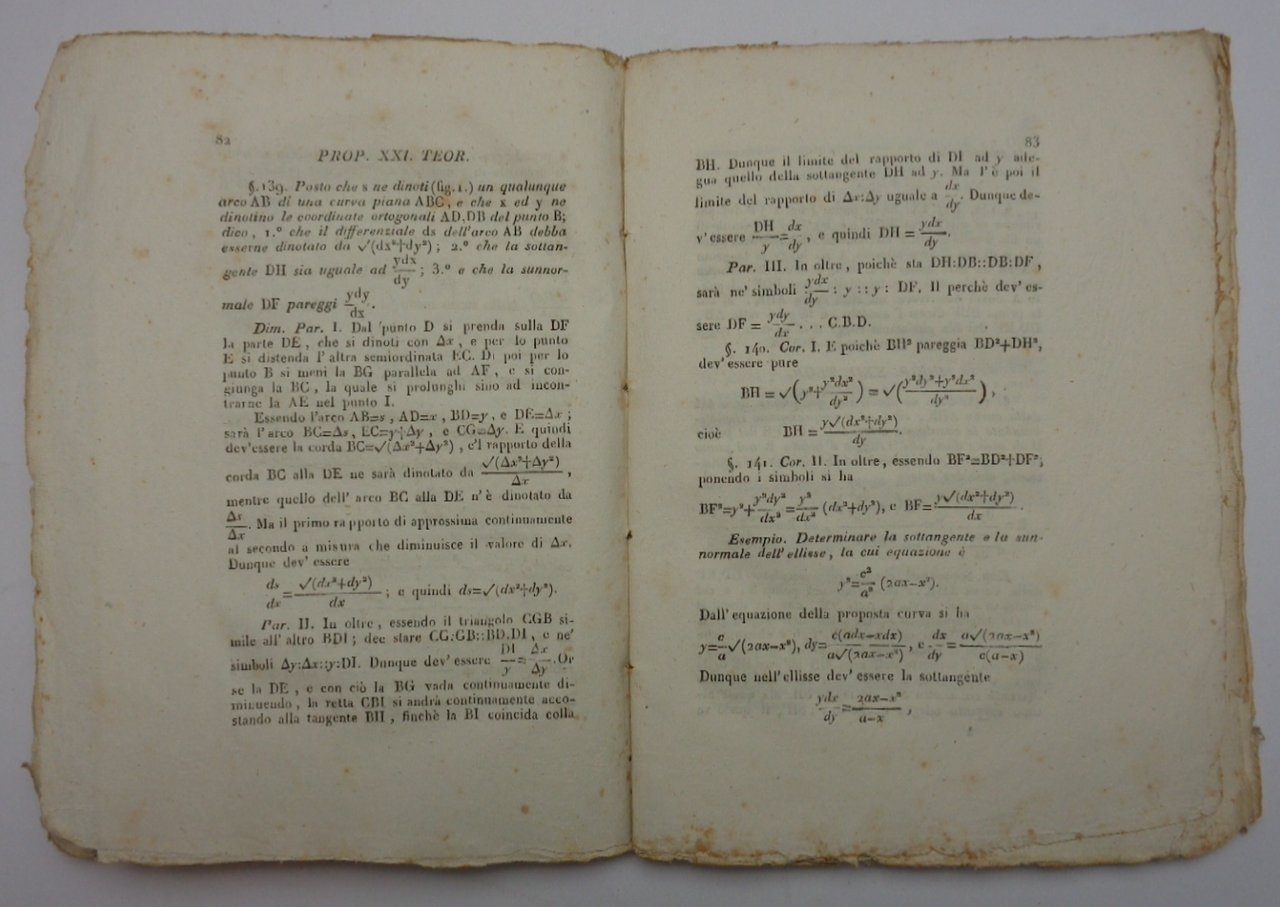 82
PROP. XXI. TEOR.
§. 139. Posto che s ne dinoti (fig. 1.) un qualunque
arco AB di una curva piana ABC, e che x ed y ne
dinotino le coordinate ortogonali AD, DB del punto B;
dico, 1.° che il differenziale ds dell'arco AB debba
esserne dinotato da √(dx²+dy²); 2.° che la sottan-
gente DH sia uguale ad ydx/dy; 3.° e che la sunnor-
male DF pareggi ydy/dx.
Dim. Par. I. Dal punto D si prenda sulla DF
la parte DE, che si dinoti con Δx, e per lo punto
E si distenda l'altra semiordinata EC. Di poi per lo
punto B si meni la BG parallela ad AF, e si con-
giunga la BC, la quale si prolunghi sino ad incon-
trarne la AE nel punto I.
Essendo l'arco AB=s, AD=x, BD=y, e DE=Δx;
sarà l'arco BC=Δs, EC=y+Δy, e CG=Δy. E quindi
dev'essere la corda BC=√(Δx²+Δy²), e'l rapporto della
corda BC alla DE ne sarà dinotato da √(Δx²+Δy²)/Δx,
mentre quello dell' arco BC alla DE n'è dinotato da
Δs/Δx. Ma il primo rapporto di approssima continuamente
al secondo a misura che diminuisce il valore di Δx.
Dunque dev' essere
ds/dx=√(dx²+dy²)/dx; e quindi ds=√(dx²+dy²).
Par. II. In oltre, essendo il triangolo CGB si-
mile all' altro BDI; dee stare CG:GB::BD.DI, e ne'
simboli Δy:Δx::y:DI. Dunque dev' essere DI/y=Δx/Δy. Or
se la DE, e con ciò la BG vada continuamente di-
minuendo, la retta CBI si andrà continuamente acco-
stando alla tangente BH, finchè la BI coincida colla
83
BH. Dunque il limite del rapporto di DI ad y ade-
gua quello della sottangente DH ad y. Ma l'è poi il
limite del rapporto di Δx:Δy uguale a dx/dy. Dunque de-
v'essere DH/y=dx/dy, e quindi DH = ydx/dy.
Par. III. In oltre, poichè sta DH:DB::DB:DF,
sarà ne' simboli ydx/dy : y :: y : DF. Il perchè dev' es-
sere DF = ydy/dx . . . C.B.D.
§. 140. Cor. I. E poichè BH² pareggia BD²+DH²,
dev' essere pure
BH = √(y²+y²dx²/dy²) = √(y²dy²+y²dx²/dy²),
cioè BH = y√(dx²+dy²)/dy.
§. 141. Cor. II. In oltre, essendo BF²=BD²+DF²;
ponendo i simboli si ha
BF²=y²+y²dy²/dx²=y²/dx² (dx²+dy²), e BF=y√(dx²+dy²)/dx.
Esempio. Determinare la sottangente e la sun-
normale dell' ellisse, la cui equazione è
y²=c²/a² (2ax−x²).
Dall' equazione della proposta curva si ha
y=c/a√(2ax−x²), dy=c(adx−xdx)/a√(2ax−x²), e dx/dy=a√(2ax−x²)/c(a−x)
Dunque nell'ellisse dev' essere la sottangente
ydx/dy=2ax−x²/a−x,